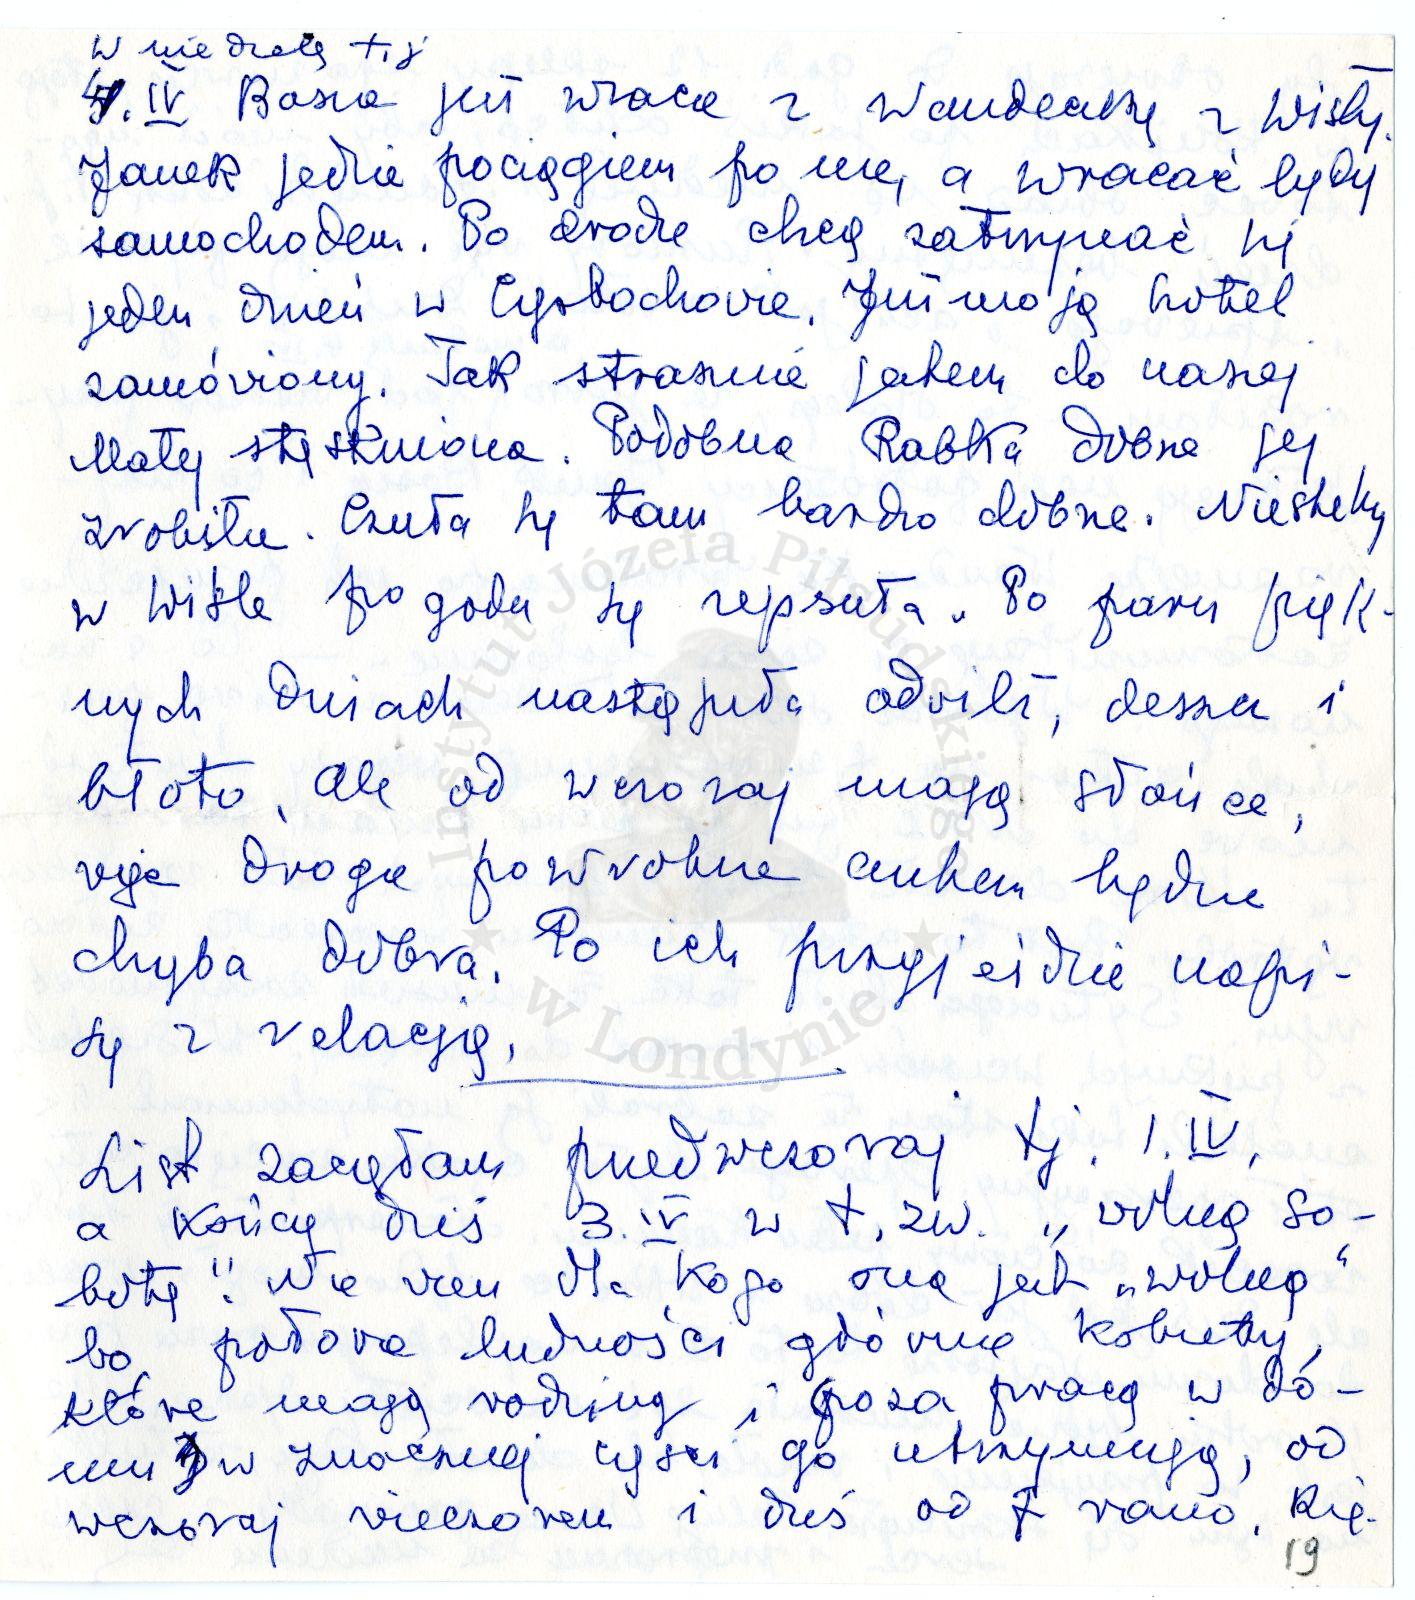 w niedzielę t.j
4.IV Basia już wraca z Wandeczką z Wisły.
Janek jedzie pociągiem po nie, a wracać będą
samochodem. Po drodze chcą zatrzymać się
jeden dzień w Częstochowie. Już mają hotel
zamówiony. Tak strasznie jestem do naszej
Małej stęskniona. Podobno Rabka dobrze jej
zrobiła. Czuła się tam bardzo dobrze. Niestety
w Wiśle pogoda się zepsuła. Po paru pięk-
nych dniach nastąpiła odwilż, deszcz i
błoto, ale od wczoraj mają słońce,
więc droga powrotna autem będzie
chyba dobra. Po ich przyjeździe napi-
szę z relacją.
List zaczęłam przedwczoraj tj. 1.IV.
a kończę dziś 3.IV w t.zw. „wolną so-
botę". Nie wiem dla kogo ona jest „wolną"
bo połowa ludności głównie kobiety,
które mają rodziny i poza pracą w do-
mu w znacznej części go utrzymują, od
wczoraj wieczorem i dziś od 7 rano.
19
Instytut Józefa Piłsudskiego
w Londynie